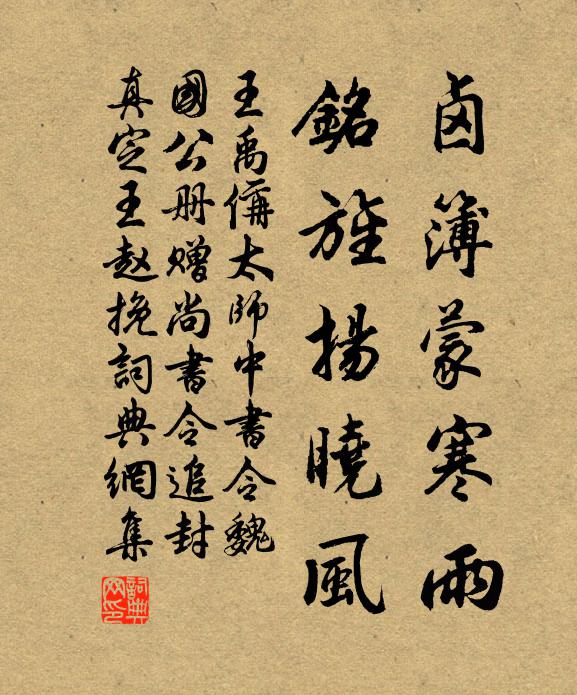 卤簿蒙寒雨
銘旌揚曉風
王禹偁太師中書令魏
國公册贈尚書令追封
真定王赵挽詞典網集
詞典网印